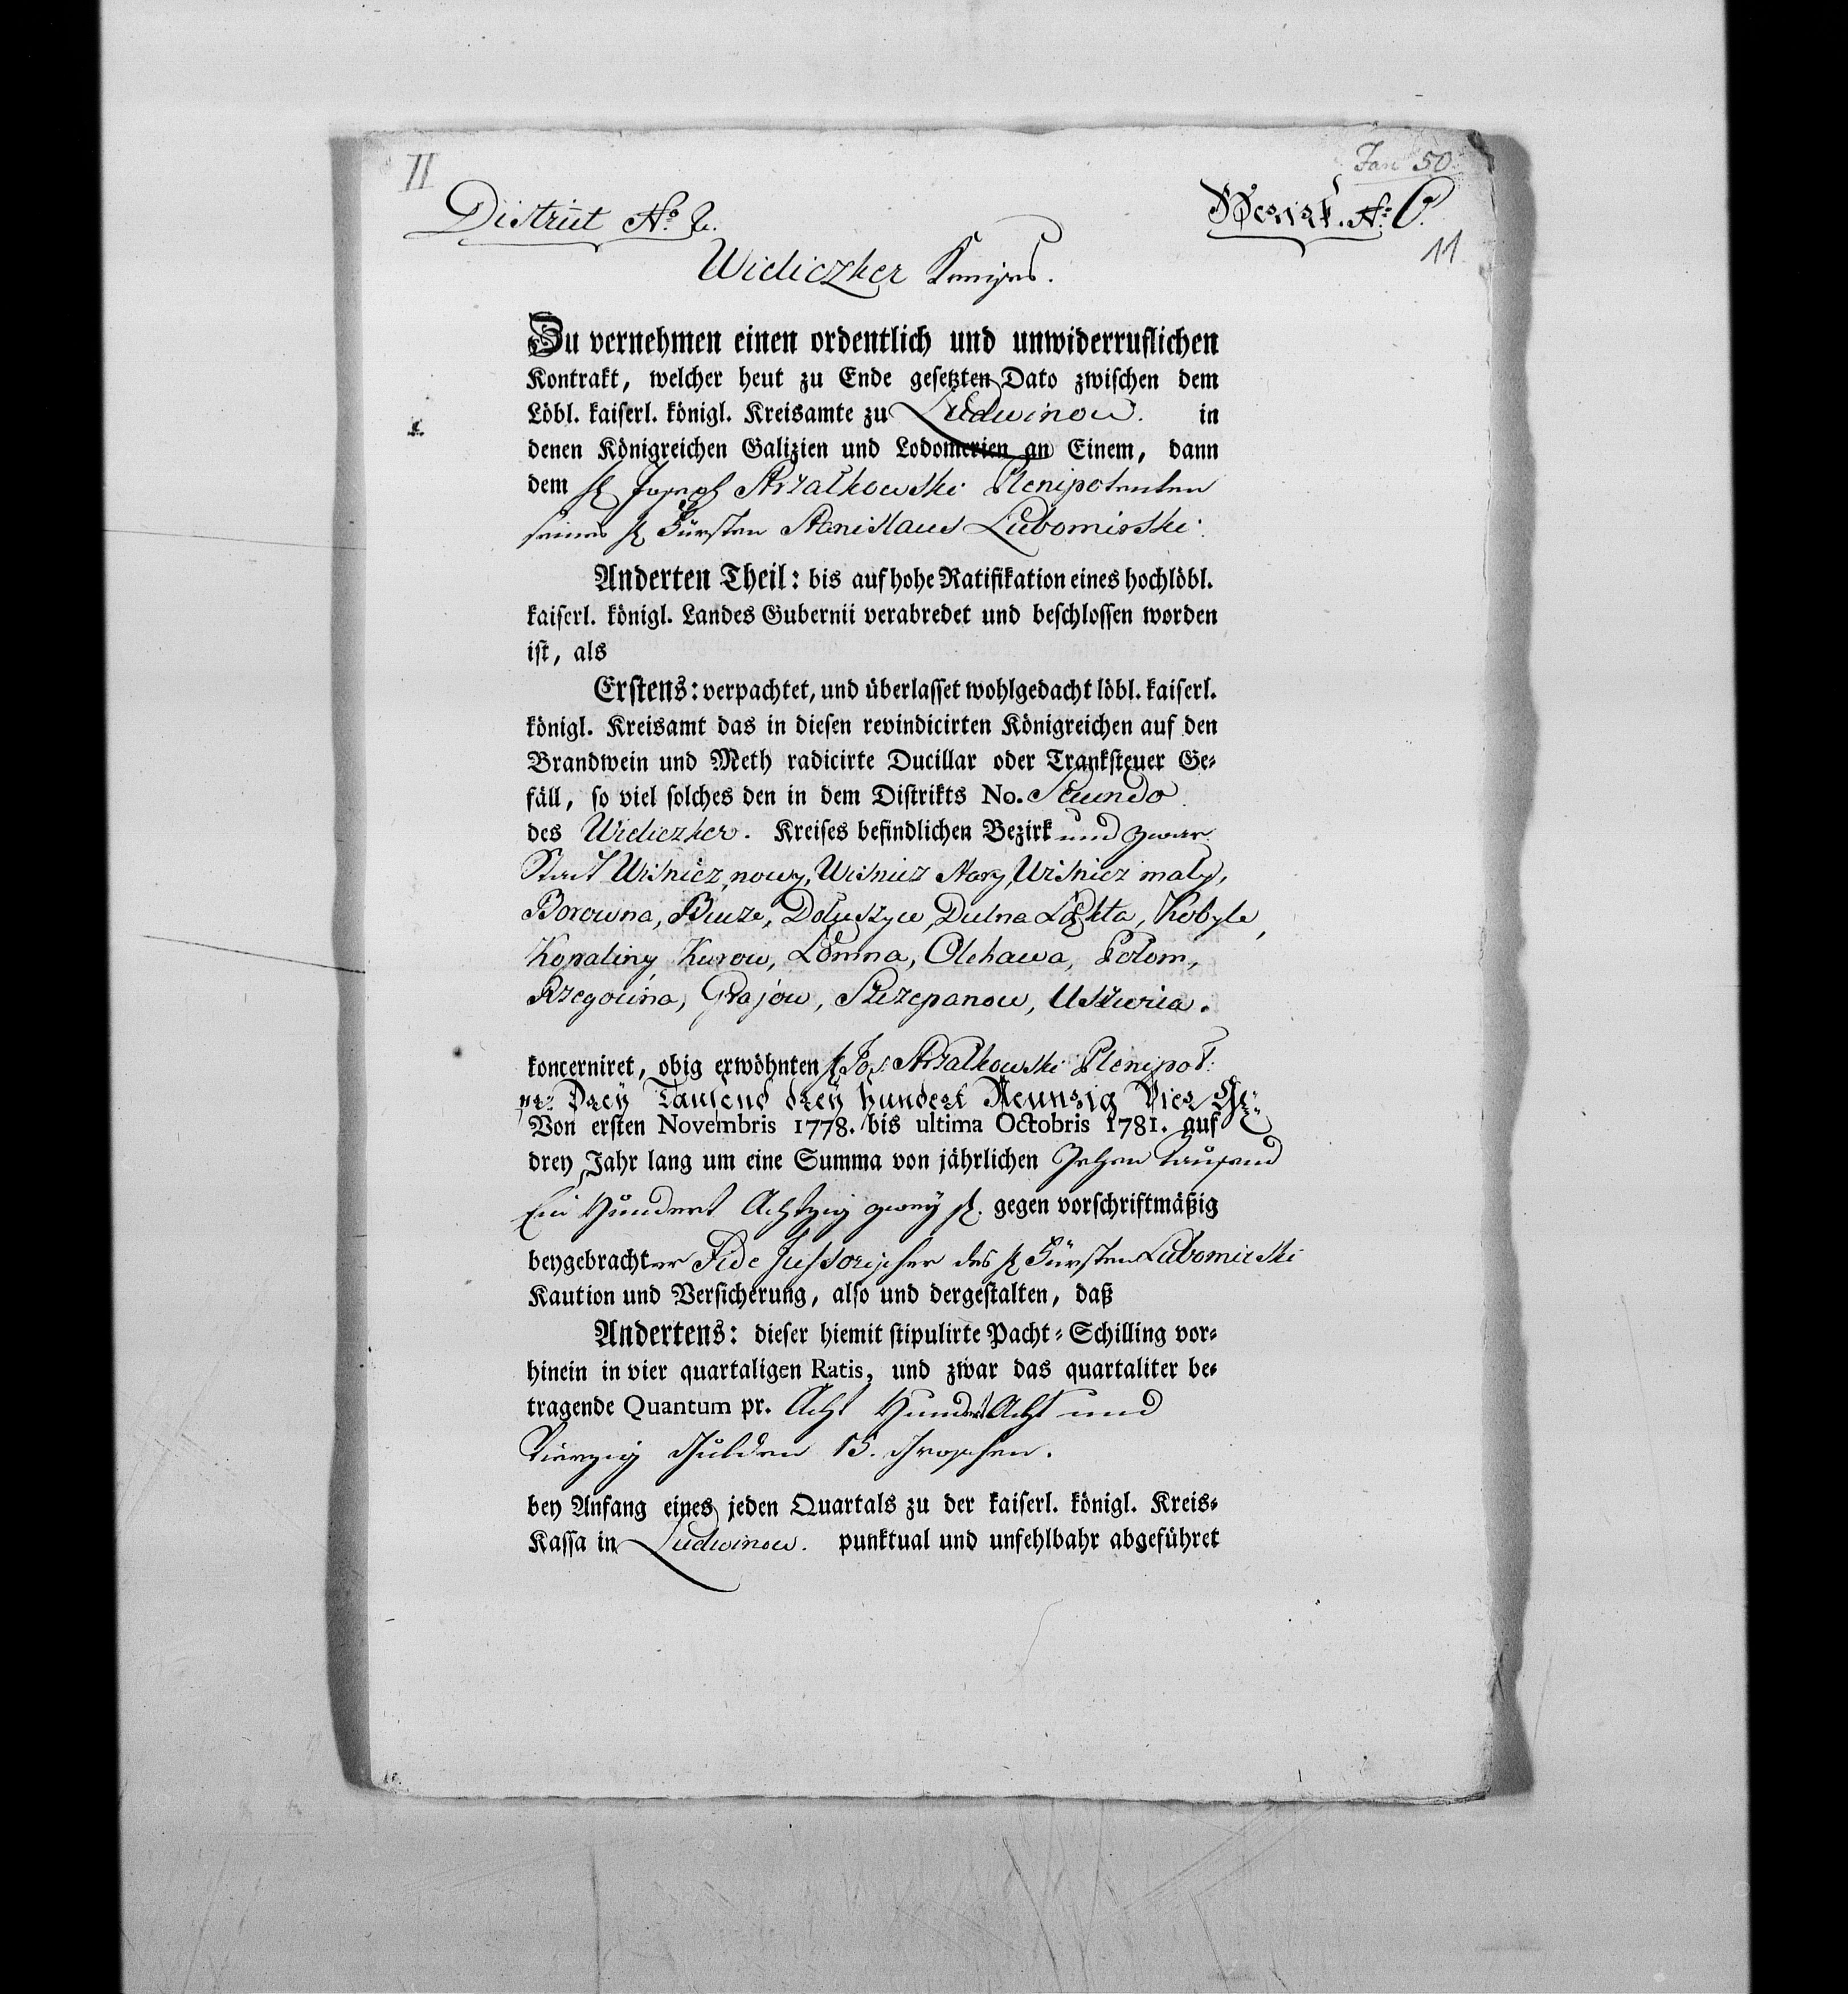 II
Jan 50.
District No. 2.
Bezirk. No. 6.
11
Wieliczker Kreises.
Zu vernehmen einen ordentlich und unwiderruflichen
Kontrakt, welcher heut zu Ende gesetzten Dato zwischen dem
Löbl. kaiserl. königl. Kreisamte zu Ludwinow. in
denen Königreichen Galizien und Lodomerien an Einem, dann
dem H Joseph Strzalkowski Plenipotenten
seines H Fürsten Stanislaus Lubomirski.
Anderten Theil: bis auf hohe Ratifikation eines hochlöbl.
kaiserl. königl. Landes Gubernii verabredet und beschlossen worden
ist, als
Erstens: verpachtet, und überlasset wohlgedacht löbl. kaiserl.
königl. Kreisamt das in diesen revindicirten Königreichen auf den
Brandwein und Meth radicirte Ducillar oder Tranksteuer Ge-
fäll, so viel solches den in dem Distrikts No. Secundo
des Wieliczker. Kreises befindlichen Bezirk und zwar
Stadt Wisnicz nowy, Wisnicz stary, Wisnicz maly,
Borowna, Bucze, Doluszyce, Dulna Ląkta, Kobyle,
Kopaliny, Kurow, Lomna, Olchawa, Polom,
Rzegocina, Grajow, Szczepanow, Uszwica.
koncerniret, obig erwöhnten H Jos. Strzalkowski Plenipot:
pr. Drey Tausend drey hundert Neunzig Vier
Von ersten Novembris 1778. bis ultima Octobris 1781. auf
drey Jahr lang um eine Summa von jährlichen Zehen Tausend
Ein Hundert Achtzig zwey fl. gegen vorschriftmäßig
beygebrachter Fide Jussorischer des H Fürsten Lubomirski
Kaution und Versicherung, also und dergestalten, daß
Andertens: dieser hiemit stipulirte Pacht-Schilling vor-
hinein in vier quartaligen Ratis, und zwar das quartaliter be-
tragende Quantum pr. Acht Hundert Acht und
Vierzig Gulden 15. Groschen.
bey Anfang eines jeden Quartals zu der kaiserl. königl. Kreis-
Kassa in Ludwinow. punktual und unfehlbahr abgeführet